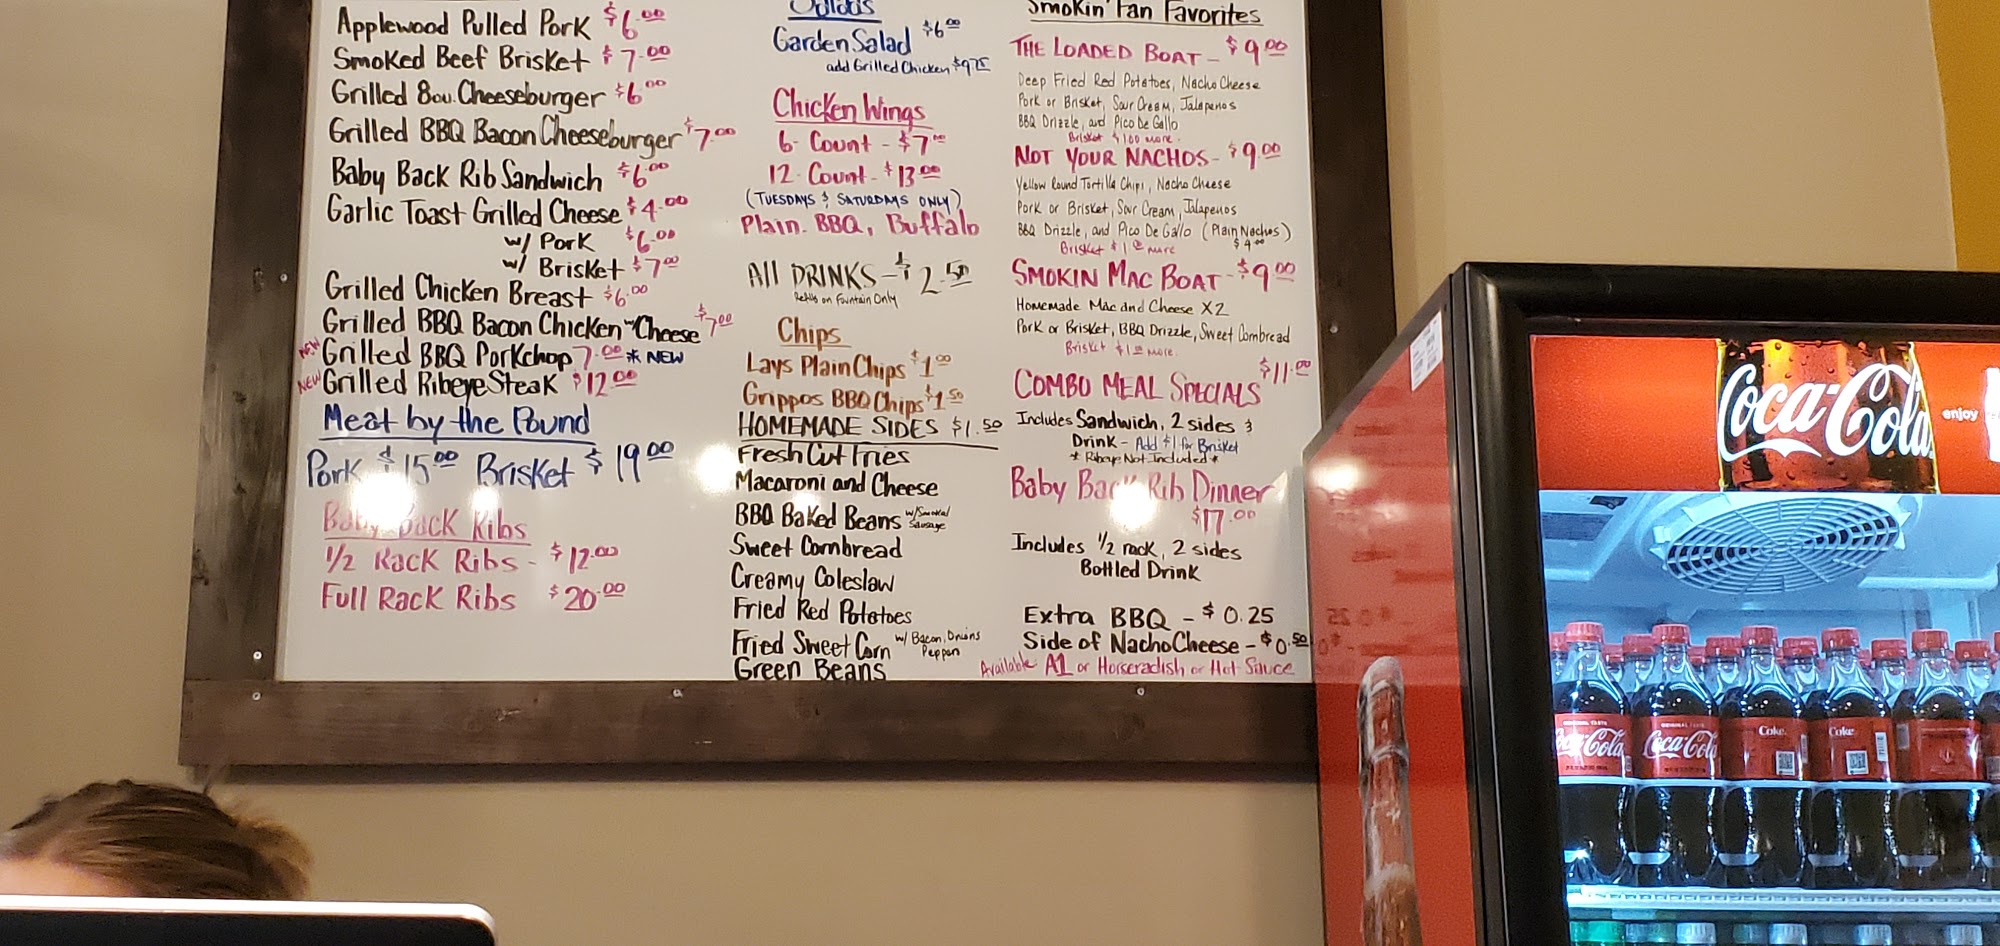 Applewood Pulled Pork $6.00
Smoked Beef Brisket $7.00
Grilled 8ou. Cheeseburger $6.00
Grilled BBQ Bacon Cheeseburger $7.00
Baby Back Rib Sandwich $6.00
Garlic Toast Grilled Cheese $4.00
w/ Pork $6.00
w/ Brisket $7.00
Grilled Chicken Breast $6.00
Grilled BBQ Bacon Chicken w/ Cheese $7.00
NEW Grilled BBQ Porkchop 7.00 * NEW
NEW Grilled Ribeye Steak $12.00
Meat by the Pound
Pork $15.00 Brisket $19.00
Baby Back Ribs
1/2 Rack Ribs - $12.00
Full Rack Ribs $20.00
Salads
Garden Salad $6.00
add Grilled Chicken $9.75
Chicken Wings
6- Count - $7.00
12- Count - $13.00
(TUESDAYS & SATURDAYS ONLY)
Plain. BBQ, Buffalo
All DRINKS - $2.50
Refills on Fountain Only
Chips
Lays Plain Chips $1.00
Grippos BBQ Chips $1.50
HOMEMADE SIDES $1.50
Fresh Cut Fries
Macaroni and Cheese
BBQ Baked Beans w/ Smoked Sausage
Sweet Cornbread
Creamy Coleslaw
Fried Red Potatoes
Fried Sweet Corn w/ Bacon, Onions
Pepper
Green Beans
Smokin' Fan Favorites
THE LOADED BOAT - $9.00
Deep Fried Red Potatoes, Nacho Cheese
Pork or Brisket, Sour Cream, Jalapenos
BBQ Drizzle, and Pico De Gallo
Brisket $1.00 more.
NOT YOUR NACHOS - $9.00
Yellow Round Tortilla Chips, Nacho Cheese
Pork or Brisket, Sour Cream, Jalapenos
BBQ Drizzle, and Pico De Gallo (Plain Nachos)
$4.00
Brisket $1.00 more
SMOKIN MAC BOAT - $9.00
Homemade Mac and Cheese X2
Pork or Brisket, BBQ Drizzle, Sweet Cornbread
Brisket $1.00 more.
COMBO MEAL SPECIALS $11.00
Includes Sandwich, 2 sides &
Drink - Add $1 for Brisket
* Ribeye Not Included *
Baby Back Rib Dinner
$17.00
Includes 1/2 rack, 2 sides
Bottled Drink
Extra BBQ - $0.25
Side of Nacho Cheese - $0.50
Available A1 or Horseradish or Hot Sauce
Coca-Cola
enjoy
Coca-Cola
Coca-Cola
Coke.
Coke.